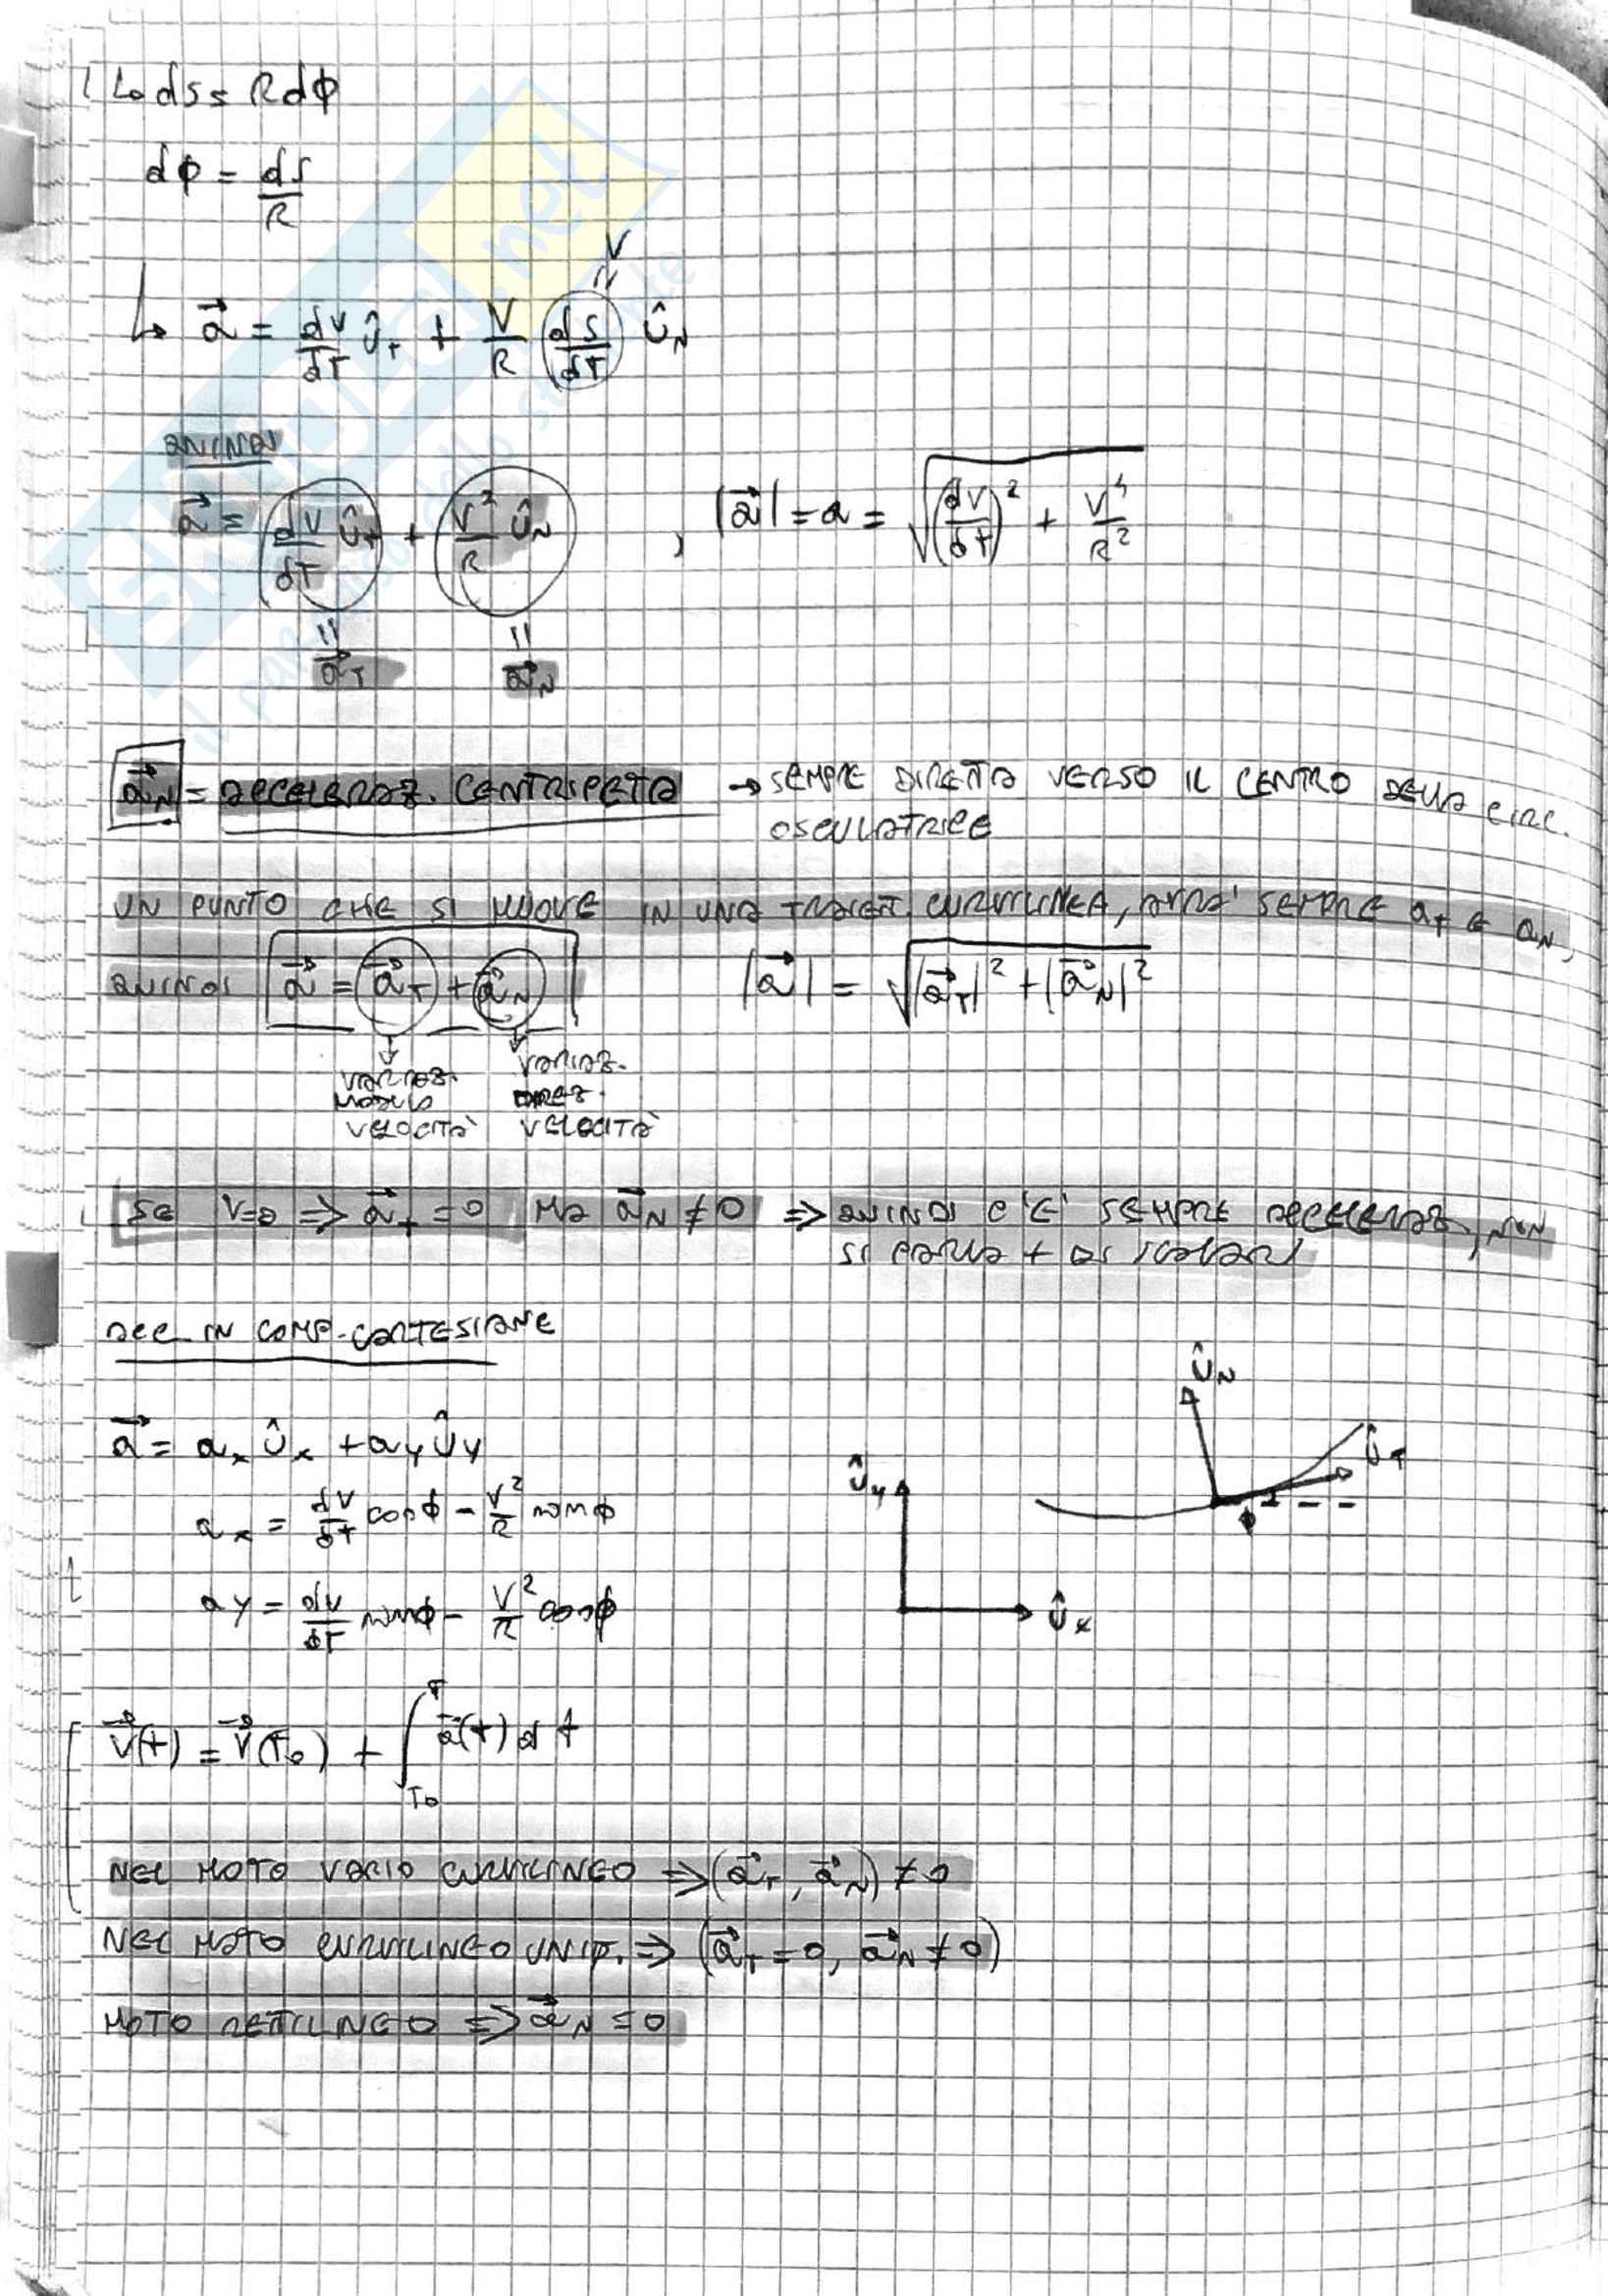 ↳ ds = R dϕ
dϕ = ds/R
v
॥
↳ a⃗ = dv/dt û_T + v/R (ds/dt) û_N
QUINDI
a⃗ = dv/dt û_T + v²/R û_N , |a⃗| = a = √((dv/dt)² + v⁴/R²)
॥ ॥
a⃗_T a⃗_N
a⃗_N = ACCELERAZ. CENTRIPETA → SEMPRE DIRETTA VERSO IL CENTRO DELLA CIRC.
OSCULATRICE
UN PUNTO CHE SI MUOVE IN UNA TRAIETT. CURVILINEA, AVRA' SEMPRE a_T E a_N,
QUINDI a⃗ = a⃗_T + a⃗_N |a⃗| = √(|a⃗_T|² + |a⃗_N|²)
VARIAZ. VARIAZ.
MODULO DIREZ.
VELOCITÀ VELOCITÀ
SE V=0 ⇒ a⃗_T = 0 MA a⃗_N ≠ 0 ⇒ QUINDI C'E' SEMPRE ACCELERAZ, NON
SI PARLA + DI SCALARI
ACC IN COMP. CARTESIANE
a⃗ = a_x û_x + a_y û_y
a_x = dv/dt cosϕ - v²/R sinϕ
a_y = dv/dt sinϕ - v²/R cosϕ
û_N
û_T
ϕ
û_y
û_x
v⃗(t) = v⃗(t₀) + ∫_{T₀}^{T} a⃗(t) dt
NEL MOTO VARIO CURVILINEO ⇒ (a⃗_T, a⃗_N) ≠ 0
NEL MOTO CURVILINEO UNIF. ⇒ (a⃗_T = 0, a⃗_N ≠ 0)
MOTO RETTILINEO ⇒ a⃗_N = 0